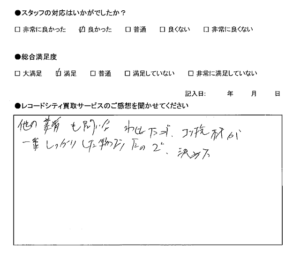 ●スタッフの対応はいかがでしたか？
□ 非常に良かった ☑ 良かった □ 普通 □ 良くない □ 非常に良くない
●総合満足度
□ 大満足 ☑ 満足 □ 普通 □ 満足していない □ 非常に満足していない
記入日: 年 月 日
●レコードシティ買取サービスのご感想を聞かせてください
他の業者も問い合わせたが、梱包材が
一番しっかりした物だったので、決めた